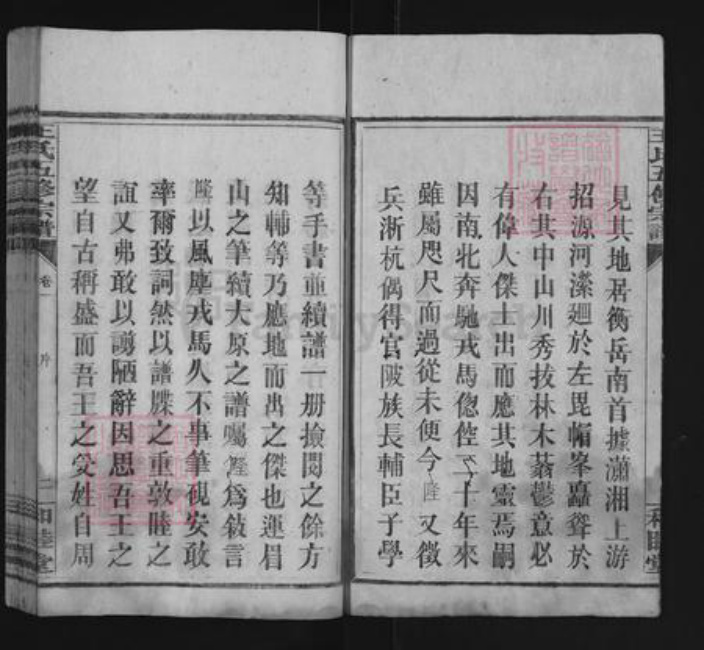 見其地居衡岳南首據瀟湘上游
招源河瀠廻於左毘帽峯矗聳於
右其中山川秀拔林木蓊鬱意必
有偉人傑士出而應其地靈焉嗣
因南北奔馳戎馬倥偬二十年來
雖屬咫尺而過從未便今隆又徵
兵淅杭偶得官陂族長輔臣子學
王氏五修宗譜
和睦堂
等手書並續譜一册撿閱之餘方
知輔等乃應地而出之傑也運眉
山之筆續大原之譜囑隆為敍言
隆以風塵戎馬久不事筆硯安敢
率爾致詞然以譜牒之重敦睦之
誼又弗敢以謭陋辭因思吾王之
望自古稱盛而吾王之受姓自周
王氏五修宗譜
卷一
二
和睦堂